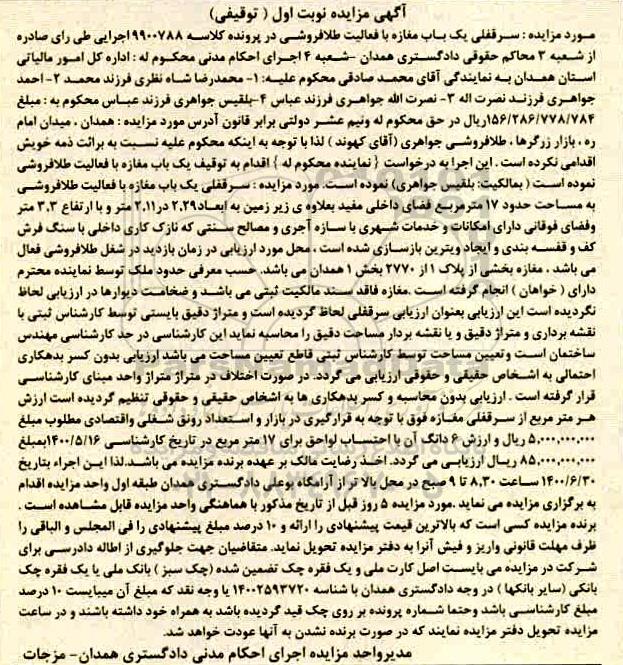 آگهی مزایده نوبت اول ( توقیفی)
مورد مزایده : سرقفلی یک باب مغازه با فعالیت طلافروشی در پرونده کلاسه ۹۹۰۰۷۸۸ اجرایی طی رای صادره
از شعبه ۳ محاکم حقوقی دادگستری همدان -شعبه ۴ اجرای احکام مدنی محکوم له : اداره کل امور مالیاتی
استان همدان به نمایندگی آقای محمد صادقی محکوم علیه: ۱- محمدرضا شاه نظری فرزند محمد ۲- احمد
جواهری فرزند نصرت اله ۳- نصرت الله جواهری فرزند عباس ۴-بلقیس جواهری فرزند عباس محکوم به : مبلغ
۱۵۶/۲۸۶/۷۷۸/۷۸۴ریال در حق محکوم له ونیم عشر دولتی برابر قانون آدرس مورد مزایده : همدان ، میدان امام
ره ، بازار زرگرها ، طلافروشی جواهری (آقای کهوند ) لذا با توجه به اینکه محکوم علیه نسبت به برائت ذمه خویش
اقدامی نکرده است . این اجرا به درخواست { نماینده محکوم له } اقدام به توقیف یک باب مغازه با فعالیت طلافروشی
نموده است ( بمالکیت: بلقیس جواهری) نموده است. مورد مزایده : سرقفلی یک باب مغازه با فعالیت طلافروشی
به مساحت حدود ۱۷ مترمربع فضای داخلی مفید بعلاوه ی زیر زمین به ابعاد۲،۲۹ در۲،۱۱ متر و با ارتفاع ۳،۳ متر
وفضای فوقانی دارای امکانات و خدمات شهری با سازه آجری و مصالح سنتی که نازک کاری داخلی با سنگ فرش
کف و قفسه بندی و ایجاد ویترین بازسازی شده است ، محل مورد ارزیابی در زمان بازدید در شغل طلافروشی فعال
می باشد ، مغازه بخشی از پلاک ۱ از ۲۷۷۰ بخش ۱ همدان می باشد. حسب معرفی حدود ملک توسط نماینده محترم
دارای ( خواهان ) انجام گرفته است .مغازه فاقد سند مالکیت ثبتی می باشد و ضخامت دیوارها در ارزیابی لحاظ
نگردیده است این ارزیابی بعنوان ارزیابی سرقفلی لحاظ گردیده است و متراژ دقیق بایستی توسط کارشناس ثبتی با
نقشه برداری و متراژ دقیق و یا نقشه بردار مساحت دقیق را محاسبه نماید این کارشناسی در حد کارشناسی مهندس
ساختمان است وتعیین مساحت توسط کارشناس ثبتی قاطع تعیین مساحت می باشد ارزیابی بدون کسر بدهکاری
احتمالی به اشخاص حقیقی و حقوقی ارزیابی می گردد. در صورت اختلاف در متراژ متراژ واحد مبنای کارشناسی
قرار گرفته است . ارزیابی بدون محاسبه و کسر بدهکاری ها به اشخاص حقیقی و حقوقی تنظیم گردیده است ارزش
هر متر مربع از سرقفلی مغازه فوق با توجه به قرارگیری در بازار و استعداد رونق شغلی واقتصادی مطلوب مبلغ
۵,۰۰۰,۰۰۰,۰۰۰ ریال و ارزش ۶ دانگ آن با احتساب لواحق برای ۱۷ متر مربع در تاریخ کارشناسی ۱۴۰۰/۵/۱۶بمبلغ
۸۵,۰۰۰,۰۰۰,۰۰۰ ریال ارزیابی می گردد. اخذ رضایت مالک بر عهده برنده مزایده می باشد.لذا این اجراء بتاریخ
۱۴۰۰/۶/۳۰ ساعت ۸,۳۰ تا ۹ صبح در محل بالا تر از آرامگاه بوعلی دادگستری همدان طبقه اول واحد مزایده اقدام
به برگزاری مزایده می نماید .مورد مزایده ۵ روز قبل از تاریخ مذکور با هماهنگی واحد مزایده قابل مشاهده است .
برنده مزایده کسی است که بالاترین قیمت پیشنهادی را ارائه و ۱۰ درصد مبلغ پیشنهادی را فی المجلس و الباقی را
ظرف مهلت قانونی واریز و فیش آنرا به دفتر مزایده تحویل نماید. متقاضیان جهت جلوگیری از اطاله دادرسی برای
شرکت در مزایده می بایست اصل کارت ملی و یک فقره چک تضمین شده (چک سبز ) بانک ملی یا یک فقره چک
بانکی (سایر بانکها ) در وجه دادگستری همدان با شناسه ۱۴۰۰۲۵۹۳۷۲۰ یا وجه نقد که مبلغ آن میبایست ۱۰ درصد
مبلغ کارشناسی باشد وحتما شماره پرونده بر روی چک قید گردیده باشد به همراه خود داشته باشند و در ساعت
مزایده تحویل دفتر مزایده نمایند که در صورت برنده نشدن به آنها عودت خواهد شد.
مدیرواحد مزایده اجرای احکام مدنی دادگستری همدان- مزجات